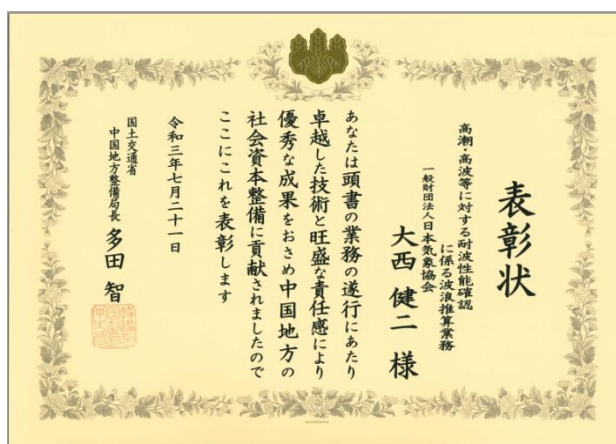 表彰状
高潮・高波等に対する耐波性能確認
に係る波浪推算業務
一般財団法人日本気象協会
大西健二 様
あなたは頭書の業務の遂行にあたり
卓越した技術と旺盛な責任感により
優秀な成果をおさめ中国地方の
社会資本整備に貢献されましたので
ここにこれを表彰します
令和三年七月二十一日
国土交通省
中国地方整備局長 多田 智